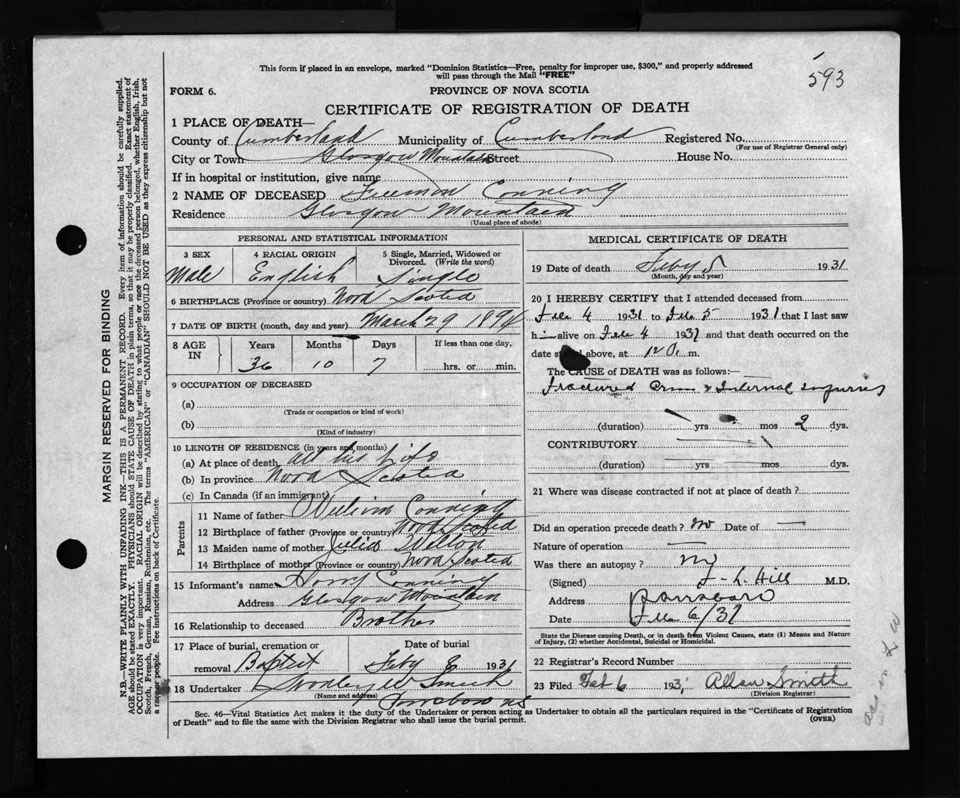 593
This form if placed in an envelope, marked "Dominion Statistics—Free, penalty for improper use, $300," and properly addressed
will pass through the Mail "FREE"
FORM 6.
PROVINCE OF NOVA SCOTIA
CERTIFICATE OF REGISTRATION OF DEATH
1 PLACE OF DEATH—
County of Cumberland Municipality of Cumberland Registered No.
(For use of Registrar General only)
City or Town Glasgow Mountain Street House No.
If in hospital or institution, give name
2 NAME OF DECEASED Freeman Conning
Residence Glasgow Mountain
(Usual place of abode)
PERSONAL AND STATISTICAL INFORMATION
3 SEX 4 RACIAL ORIGIN 5 Single, Married, Widowed or
Divorced. (Write the word)
Male English Single
6 BIRTHPLACE (Province or country) Nova Scotia
7 DATE OF BIRTH (month, day and year) March 29 1894
8 AGE IN Years Months Days If less than one day,
36 10 7 hrs. or min.
9 OCCUPATION OF DECEASED
(a)
(Trade or occupation or kind of work)
(b)
(Kind of industry)
10 LENGTH OF RESIDENCE (in years and months)
(a) At place of death all his life
(b) In province Nova Scotia
(c) In Canada (if an immigrant)
Parents
11 Name of father William Conning
12 Birthplace of father (Province or country) Nova Scotia
13 Maiden name of mother
14 Birthplace of mother (Province or country) Nova Scotia
15 Informant's name Harry Conning
Address Glasgow Mountain
16 Relationship to deceased Brother
17 Place of burial, cremation or Date of burial
removal Baptist Feby 8 1931
18 Undertaker Smith
(Name and address)
Parrsboro NS
MEDICAL CERTIFICATE OF DEATH
19 Date of death Feby 5 1931
(Month, day and year)
20 I HEREBY CERTIFY that I attended deceased from
Feb 4 1931 to Feb 5 1931 that I last saw
him alive on Feb 4 1931 and that death occurred on the
date above, at 12 m.
The CAUSE of DEATH was as follows:—
Fractured & Internal injuries
(duration) yrs mos 2 dys.
CONTRIBUTORY
(duration) yrs mos. dys.
21 Where was disease contracted if not at place of death?
Did an operation precede death? no Date of —
Nature of operation —
Was there an autopsy? no
(Signed) Hill M.D.
Address Parrsboro
Date Feb 6/31
State the Disease causing Death, or in death from Violent Causes, state (1) Means and Nature
of Injury, (2) whether Accidental, Suicidal or Homicidal.
22 Registrar's Record Number
23 Filed Feb 6 1931 Allan Smith
(Division Registrar)
Sec. 46—Vital Statistics Act makes it the duty of the Undertaker or person acting as Undertaker to obtain all the particulars required in the "Certificate of Registration
of Death" and to file the same with the Division Registrar who shall issue the burial permit.
(OVER)
MARGIN RESERVED FOR BINDING
N.B.—WRITE PLAINLY WITH UNFADING INK—THIS IS A PERMANENT RECORD. Every item of information should be carefully supplied.
AGE should be stated EXACTLY. PHYSICIANS should STATE CAUSE OF DEATH in plain terms, so that it may be properly classified. Exact statement of
OCCUPATION is very important. RACIAL ORIGIN will be described by stating to what people or race the deceased person belonged, whether English, Irish,
Scotch, French, German, Russian, Ruthenian, etc. The terms "AMERICAN" or "CANADIAN" SHOULD NOT BE USED as they express citizenship but not
a race or people. See instructions on back of Certificate.